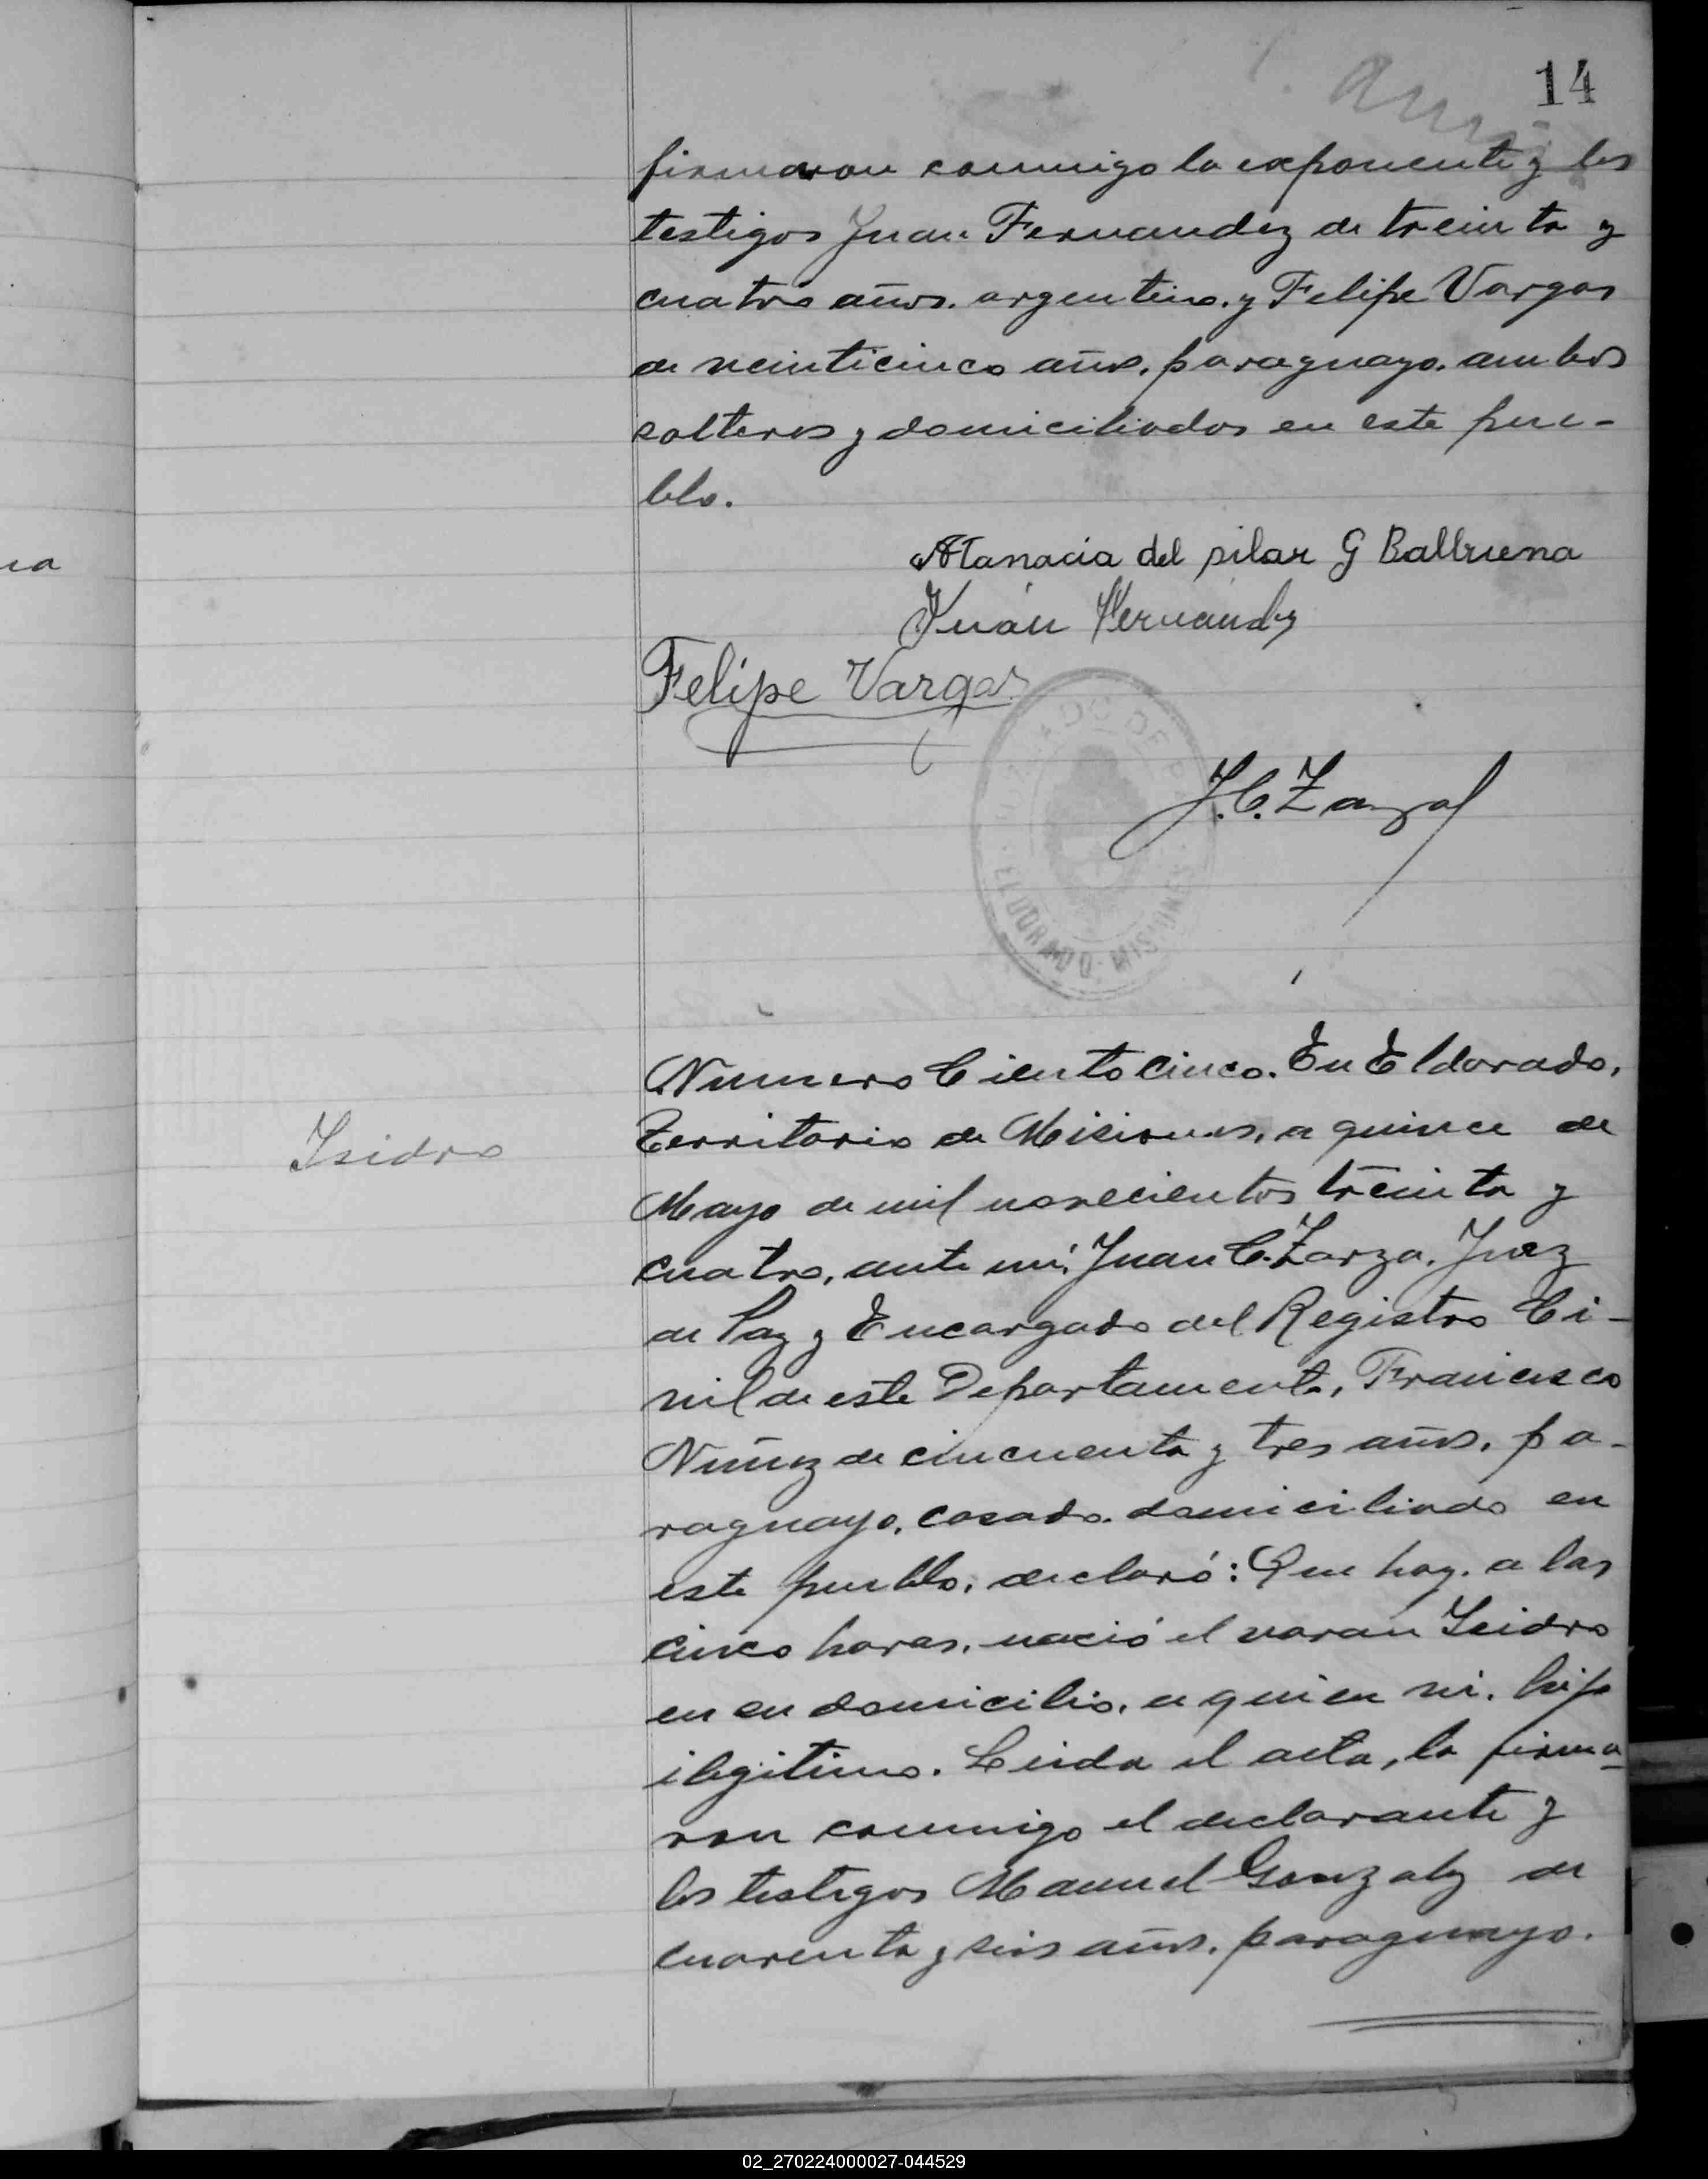 14
firmaron conmigo la exponente y los
testigos Juan Fernandez de treinta y
cuatro años. argentino. y Felipe Vargas
de veinticinco años. paraguayo. ambos
solteros y domiciliados en este pue-
blo.
Atanacia del pilar G Balbuena
Juán Fernandez
Felipe Vargas
J.C. Zarza
ELDORADO. MISIONES
Isidro
Numero Ciento Cinco. En Eldorado,
Territorio de Misiones, a quince de
Mayo de mil novecientos treinta y
cuatro, ante mí, Juan C. Zarza. Juez
de Paz y Encargado del Registro Ci-
vil de este Departamento, Francisco
Nuñez de cincuenta y tres años. pa-
raguayo, casado. domiciliado en
este pueblo, declaró: Que hoy. a las
cinco horas. nació el varon Isidro
en su domicilio. a quien vi. hijo
ilegitimo. Leida el acta, la firma-
ron conmigo el declarante y
los testigos Manuel Gonzalez de
cuarenta y seis años. paraguayo.
02_270224000027-044529